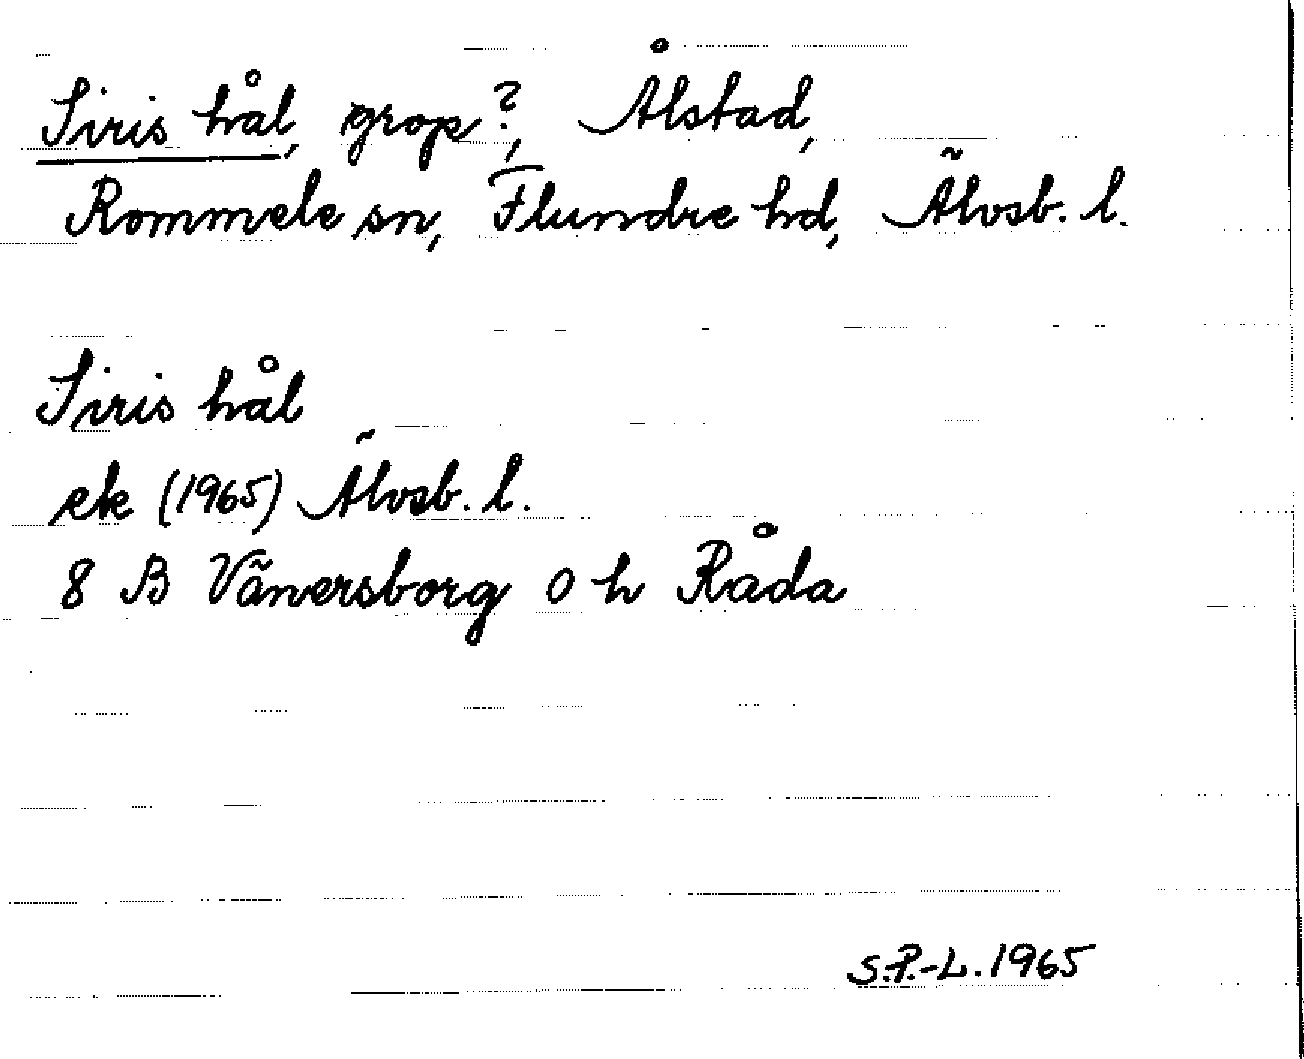 Siris hål, grop?, Ålstad,
Rommele sn, Flundre hd, Älvsb. l.
Siris hål
ek (1965) Älvsb. l.
8 B Vänersborg 0 h Råda
S.P.-L. 1965